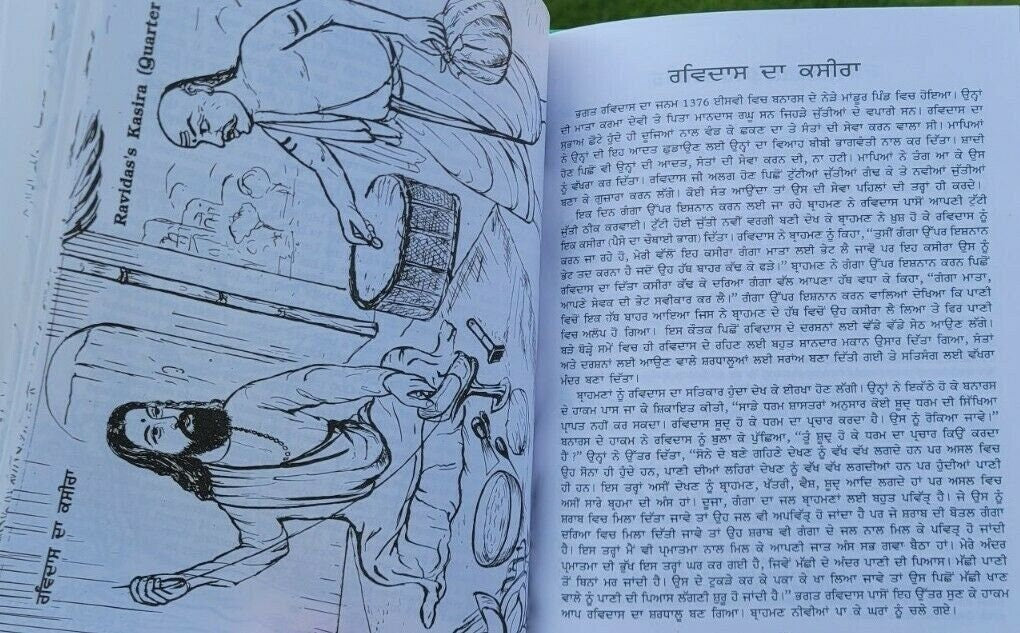 Ravidas's Kasira (Quarter
ਰਵਿਦਾਸ ਦਾ ਕਸੀਰਾ
ਰਵਿਦਾਸ ਦਾ ਕਸੀਰਾ
ਭਗਤ ਰਵਿਦਾਸ ਦਾ ਜਨਮ 1376 ਈਸਵੀ ਵਿਚ ਬਨਾਰਸ ਦੇ ਨੇੜੇ ਮਾਂਡੂਰ ਪਿੰਡ ਵਿਚ ਹੋਇਆ। ਉਨ੍ਹਾਂ
ਦੀ ਮਾਤਾ ਕਰਮਾ ਦੇਵੀ ਤੇ ਪਿਤਾ ਮਾਨਦਾਸ ਰਘੂ ਸਨ ਜਿਹੜੇ ਜੁੱਤੀਆਂ ਦੇ ਵਪਾਰੀ ਸਨ। ਰਵਿਦਾਸ ਦਾ
ਸੁਭਾਅ ਛੋਟੇ ਹੁੰਦੇ ਹੀ ਦੂਜਿਆਂ ਨਾਲ ਵੰਡ ਕੇ ਛਕਣ ਦਾ ਤੇ ਸੰਤਾਂ ਦੀ ਸੇਵਾ ਕਰਨ ਵਾਲਾ ਸੀ। ਮਾਪਿਆਂ
ਨੇ ਉਨ੍ਹਾਂ ਦੀ ਇਹ ਆਦਤ ਛੁਡਾਉਣ ਲਈ ਉਨ੍ਹਾਂ ਦਾ ਵਿਆਹ ਬੀਬੀ ਭਾਗਵੰਤੀ ਨਾਲ ਕਰ ਦਿੱਤਾ। ਸ਼ਾਦੀ
ਹੋਣ ਪਿਛੋਂ ਵੀ ਉਨ੍ਹਾਂ ਦੀ ਆਦਤ, ਸੰਤਾਂ ਦੀ ਸੇਵਾ ਕਰਨ ਦੀ, ਨਾ ਹਟੀ। ਮਾਪਿਆਂ ਨੇ ਤੰਗ ਆ ਕੇ ਉਸ
ਨੂੰ ਵੱਖਰਾ ਕਰ ਦਿੱਤਾ। ਰਵਿਦਾਸ ਜੀ ਅਲਗ ਹੋਣ ਪਿਛੋਂ ਟੁੱਟੀਆਂ ਜੁੱਤੀਆਂ ਗੰਢ ਕੇ ਤੇ ਨਵੀਆਂ ਜੁੱਤੀਆਂ
ਬਣਾ ਕੇ ਗੁਜ਼ਾਰਾ ਕਰਨ ਲੱਗੇ। ਕੋਈ ਸੰਤ ਆਉਂਦਾ ਤਾਂ ਉਸ ਦੀ ਸੇਵਾ ਪਹਿਲਾਂ ਦੀ ਤਰ੍ਹਾਂ ਹੀ ਕਰਦੇ।
ਇਕ ਦਿਨ ਗੰਗਾ ਉੱਪਰ ਇਸ਼ਨਾਨ ਕਰਨ ਲਈ ਜਾ ਰਹੇ ਬ੍ਰਾਹਮਣ ਨੇ ਰਵਿਦਾਸ ਪਾਸੋਂ ਆਪਣੀ ਟੁੱਟੀ
ਜੁੱਤੀ ਠੀਕ ਕਰਵਾਈ। ਟੁੱਟੀ ਹੋਈ ਜੁੱਤੀ ਨਵੀਂ ਵਰਗੀ ਬਣੀ ਦੇਖ ਕੇ ਬ੍ਰਾਹਮਣ ਨੇ ਖੁਸ਼ ਹੋ ਕੇ ਰਵਿਦਾਸ ਨੂੰ
ਇਕ ਕਸੀਰਾ (ਪੈਸੇ ਦਾ ਚੌਥਾਈ ਭਾਗ) ਦਿੱਤਾ। ਰਵਿਦਾਸ ਨੇ ਬ੍ਰਾਹਮਣ ਨੂੰ ਕਿਹਾ, “ਤੁਸੀਂ ਗੰਗਾ ਉੱਪਰ ਇਸ਼ਨਾਨ
ਕਰਨ ਜਾ ਰਹੇ ਹੋ, ਮੇਰੀ ਵੱਲੋਂ ਇਹ ਕਸੀਰਾ ਗੰਗਾ ਮਾਤਾ ਲਈ ਭੇਟ ਲੈ ਜਾਵੋ ਪਰ ਇਹ ਕਸੀਰਾ ਉਸ ਨੂੰ
ਭੇਟ ਤਦ ਕਰਨਾ ਹੈ ਜਦੋਂ ਉਹ ਹੱਥ ਬਾਹਰ ਕੱਢ ਕੇ ਫੜੇ।” ਬ੍ਰਾਹਮਣ ਨੇ ਗੰਗਾ ਉੱਪਰ ਇਸ਼ਨਾਨ ਕਰਨ ਪਿਛੋਂ
ਰਵਿਦਾਸ ਦਾ ਦਿੱਤਾ ਕਸੀਰਾ ਕੱਢ ਕੇ ਦਰਿਆ ਗੰਗਾ ਵੱਲ ਆਪਣਾ ਹੱਥ ਵਧਾ ਕੇ ਕਿਹਾ, “ਗੰਗਾ ਮਾਤਾ,
ਆਪਣੇ ਸੇਵਕ ਦੀ ਭੇਟ ਸਵੀਕਾਰ ਕਰ ਲੈ।” ਗੰਗਾ ਉੱਪਰ ਇਸ਼ਨਾਨ ਕਰਨ ਵਾਲਿਆਂ ਦੇਖਿਆ ਕਿ ਪਾਣੀ
ਵਿਚੋਂ ਇਕ ਹੱਥ ਬਾਹਰ ਆਇਆ ਜਿਸ ਨੇ ਬ੍ਰਾਹਮਣ ਦੇ ਹੱਥ ਵਿਚੋਂ ਉਹ ਕਸੀਰਾ ਲੈ ਲਿਆ ਤੇ ਫਿਰ ਪਾਣੀ
ਵਿਚ ਅਲੋਪ ਹੋ ਗਿਆ। ਇਸ ਕੌਤਕ ਪਿਛੋਂ ਰਵਿਦਾਸ ਦੇ ਦਰਸ਼ਨਾਂ ਲਈ ਵੱਡੇ ਵੱਡੇ ਸੇਠ ਆਉਣ ਲੱਗੇ।
ਬੜੇ ਥੋੜ੍ਹੇ ਸਮੇਂ ਵਿਚ ਹੀ ਰਵਿਦਾਸ ਦੇ ਰਹਿਣ ਲਈ ਬਹੁਤ ਸ਼ਾਨਦਾਰ ਮਕਾਨ ਉਸਾਰ ਦਿੱਤਾ ਗਿਆ, ਸੰਤਾਂ
ਅਤੇ ਦਰਸ਼ਨਾਂ ਲਈ ਆਉਣ ਵਾਲੇ ਸ਼ਰਧਾਲੂਆਂ ਲਈ ਸਰਾਂਅ ਬਣਾ ਦਿੱਤੀ ਗਈ ਤੇ ਸਤਿਸੰਗ ਲਈ ਵੱਖਰਾ
ਮੰਦਰ ਬਣਾ ਦਿੱਤਾ।
ਬ੍ਰਾਹਮਣਾਂ ਨੂੰ ਰਵਿਦਾਸ ਦਾ ਸਤਿਕਾਰ ਹੁੰਦਾ ਦੇਖ ਕੇ ਈਰਖਾ ਹੋਣ ਲੱਗੀ। ਉਨ੍ਹਾਂ ਨੇ ਇਕੱਠੇ ਹੋ ਕੇ ਬਨਾਰਸ
ਦੇ ਹਾਕਮ ਪਾਸ ਜਾ ਕੇ ਸ਼ਿਕਾਇਤ ਕੀਤੀ, “ਸਾਡੇ ਧਰਮ ਸ਼ਾਸਤਰਾਂ ਅਨੁਸਾਰ ਕੋਈ ਸ਼ੂਦ੍ਰ ਧਰਮ ਦੀ ਸਿੱਖਿਆ
ਪ੍ਰਾਪਤ ਨਹੀਂ ਕਰ ਸਕਦਾ। ਰਵਿਦਾਸ ਸ਼ੂਦ੍ਰ ਹੋ ਕੇ ਧਰਮ ਦਾ ਪ੍ਰਚਾਰ ਕਰਦਾ ਹੈ। ਉਸ ਨੂੰ ਰੋਕਿਆ ਜਾਵੇ।”
ਬਨਾਰਸ ਦੇ ਹਾਕਮ ਨੇ ਰਵਿਦਾਸ ਨੂੰ ਬੁਲਾ ਕੇ ਪੁੱਛਿਆ, “ਤੂੰ ਸ਼ੂਦ੍ਰ ਹੋ ਕੇ ਧਰਮ ਦਾ ਪ੍ਰਚਾਰ ਕਿਉਂ ਕਰਦਾ
ਹੈਂ ?” ਉਨ੍ਹਾਂ ਨੇ ਉੱਤਰ ਦਿੱਤਾ, “ਸੋਨੇ ਦੇ ਬਣੇ ਗਹਿਣੇ ਦੇਖਣ ਨੂੰ ਵੱਖ ਵੱਖ ਲਗਦੇ ਹਨ ਪਰ ਅਸਲ ਵਿਚ
ਉਹ ਸੋਨਾ ਹੀ ਹੁੰਦੇ ਹਨ, ਪਾਣੀ ਦੀਆਂ ਲਹਿਰਾਂ ਦੇਖਣ ਨੂੰ ਵੱਖ ਵੱਖ ਲਗਦੀਆਂ ਹਨ ਪਰ ਹੁੰਦੀਆਂ ਪਾਣੀ
ਹੀ ਹਨ। ਇਸ ਤਰ੍ਹਾਂ ਅਸੀਂ ਦੇਖਣ ਨੂੰ ਬ੍ਰਾਹਮਣ, ਖੱਤਰੀ, ਵੈਸ਼, ਸ਼ੂਦ੍ਰ ਆਦਿ ਲਗਦੇ ਹਾਂ ਪਰ ਅਸਲ ਵਿਚ
ਅਸੀਂ ਸਾਰੇ ਬ੍ਰਹਮਾ ਦੀ ਅੰਸ ਹਾਂ। ਦੂਜਾ, ਗੰਗਾ ਦਾ ਜਲ ਬ੍ਰਾਹਮਣਾਂ ਲਈ ਬਹੁਤ ਪਵਿੱਤ੍ਰ ਹੈ। ਜੇ ਉਸ ਨੂੰ
ਸ਼ਰਾਬ ਵਿਚ ਮਿਲਾ ਦਿੱਤਾ ਜਾਵੇ ਤਾਂ ਉਹ ਜਲ ਵੀ ਅਪਵਿੱਤ੍ਰ ਹੋ ਜਾਂਦਾ ਹੈ ਪਰ ਜੇ ਸ਼ਰਾਬ ਦੀ ਬੋਤਲ ਗੰਗਾ
ਦਰਿਆ ਵਿਚ ਮਿਲਾ ਦਿੱਤੀ ਜਾਵੇ ਤਾਂ ਉਹ ਸ਼ਰਾਬ ਵੀ ਗੰਗਾ ਦੇ ਜਲ ਨਾਲ ਮਿਲ ਕੇ ਪਵਿਤ੍ਰ ਹੋ ਜਾਂਦੀ
ਹੈ। ਇਸ ਤਰ੍ਹਾਂ ਮੈਂ ਵੀ ਪ੍ਰਮਾਤਮਾ ਨਾਲ ਮਿਲ ਕੇ ਆਪਣੀ ਜਾਤ ਅੰਸ ਸਭ ਗਵਾ ਬੈਠਾ ਹਾਂ। ਮੇਰੇ ਅੰਦਰ
ਪ੍ਰਮਾਤਮਾ ਦੀ ਭੁੱਖ ਇਸ ਤਰ੍ਹਾਂ ਘਰ ਕਰ ਗਈ ਹੈ, ਜਿਵੇਂ ਮੱਛੀ ਦੇ ਅੰਦਰ ਪਾਣੀ ਦੀ ਪਿਆਸ। ਮੱਛੀ ਪਾਣੀ
ਤੋਂ ਬਿਨਾਂ ਮਰ ਜਾਂਦੀ ਹੈ। ਉਸ ਦੇ ਟੁਕੜੇ ਕਰ ਕੇ ਪਕਾ ਕੇ ਖਾ ਲਿਆ ਜਾਵੇ ਤਾਂ ਉਸ ਪਿਛੋਂ ਮੱਛੀ ਖਾਣ
ਵਾਲੇ ਨੂੰ ਪਾਣੀ ਦੀ ਪਿਆਸ ਲੱਗਣੀ ਸ਼ੁਰੂ ਹੋ ਜਾਂਦੀ ਹੈ।” ਭਗਤ ਰਵਿਦਾਸ ਪਾਸੋਂ ਇਹ ਉੱਤਰ ਸੁਣ ਕੇ ਹਾਕਮ
ਆਪ ਰਵਿਦਾਸ ਦਾ ਸ਼ਰਧਾਲੂ ਬਣ ਗਿਆ। ਬ੍ਰਾਹਮਣ ਨੀਵੀਆਂ ਪਾ ਕੇ ਘਰਾਂ ਨੂੰ ਚਲੇ ਗਏ।